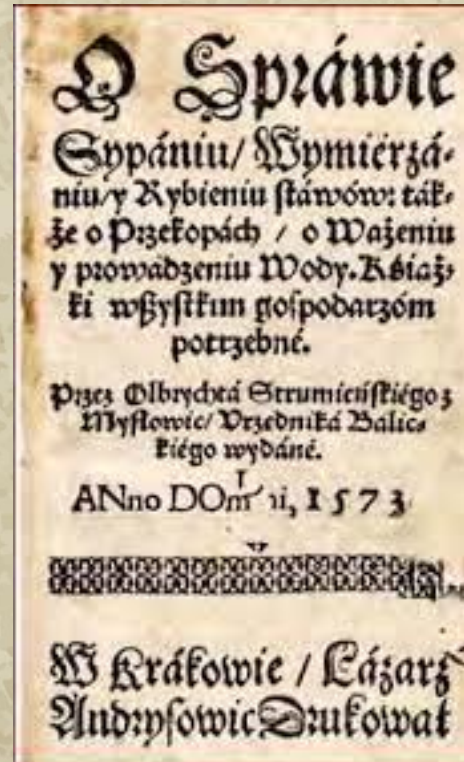 O Spráwie
Sypániu/ Wymiérzá⸗
niu/ y Rybieniu stáwów: ták⸗
że o Przekopách / o Ważeniu
y prowadzeniu Wody. Kśiąż⸗
ki wszystkim gospodarzóm
potrzebné.
Przez Olbrychtá Strumieńskiégo z
Mysłowic/ Vrzędniká Balic⸗
kiégo wydáné.
ANno DOmini, 1573
W Krákowie / Łázarz
Andrysowic Drukował